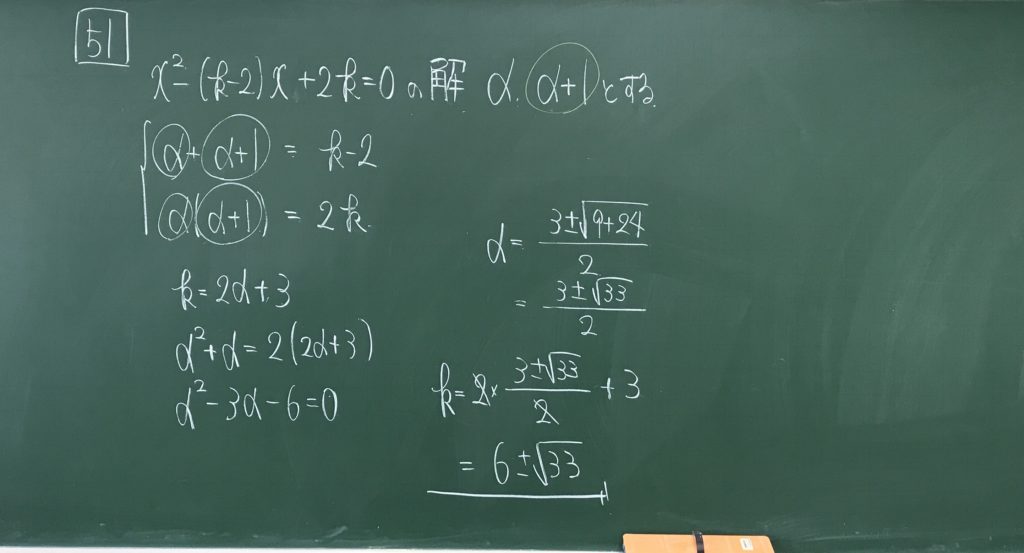 51
x²-(k-2)x+2k=0の解 α, α+1とする.
α+α+1 = k-2
α(α+1) = 2k.
k=2α+3
α²+α=2(2α+3)
α²-3α-6=0
α= (3±√(9+24))/2
= (3±√33)/2
k=2× (3±√33)/2 +3
= 6±√33